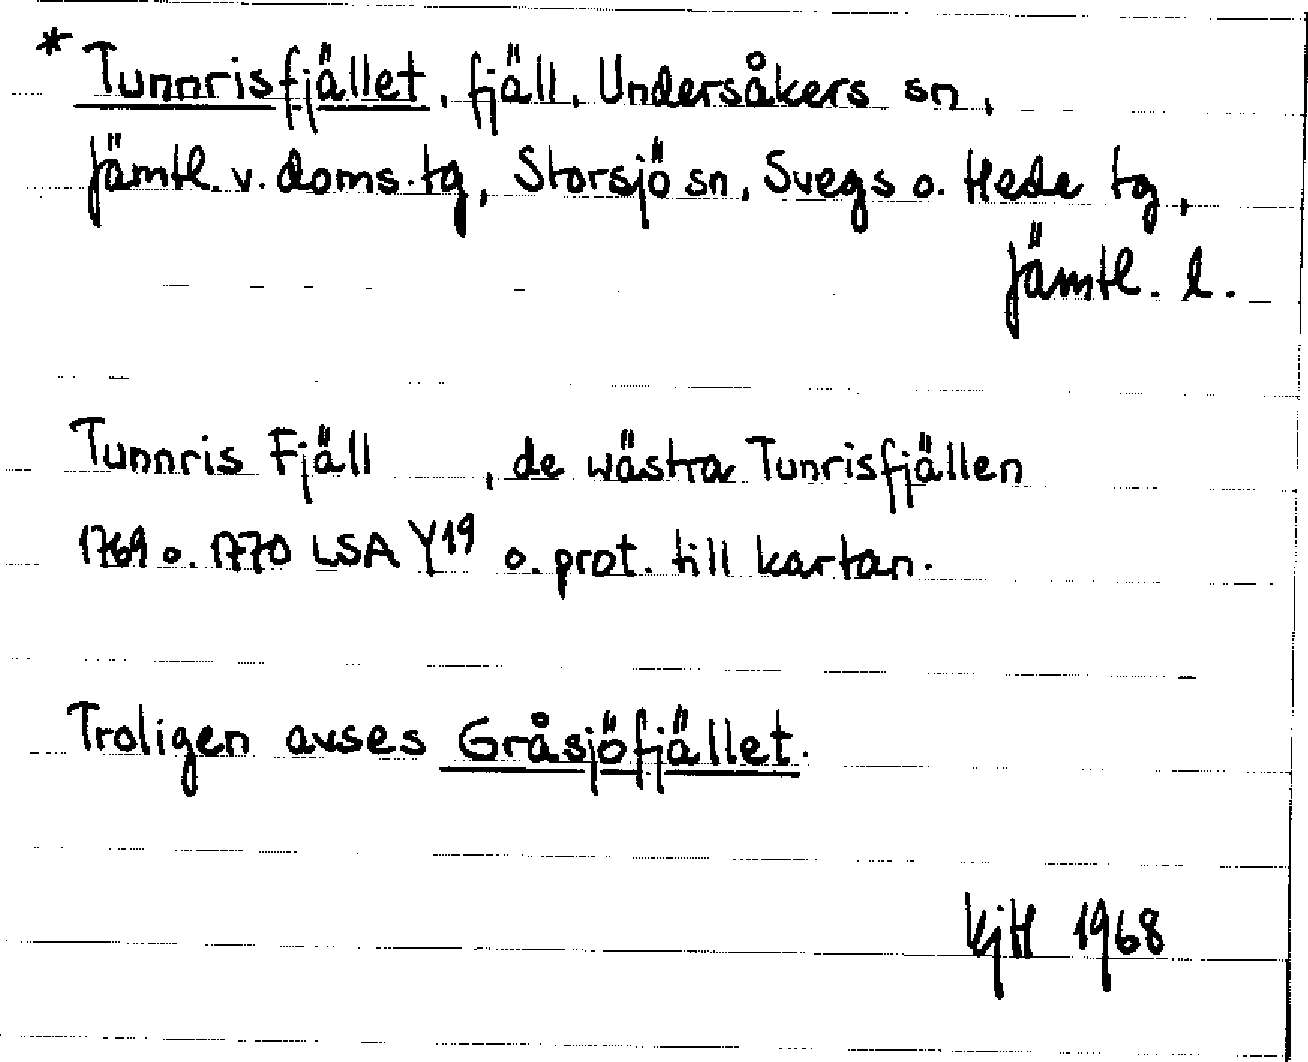 * Tunnrisfjället, fjäll, Undersåkers sn,
Jämtl. v. doms.tg, Storsjö sn, Svegs o. Hede tg,
Jämtl. l.
Tunnris Fjäll , de wästra Tunrisfjällen
1769 o. 1770 LSA Y19 o. prot. till kartan.
Troligen avses Gråsjöfjället.
KjH 1968